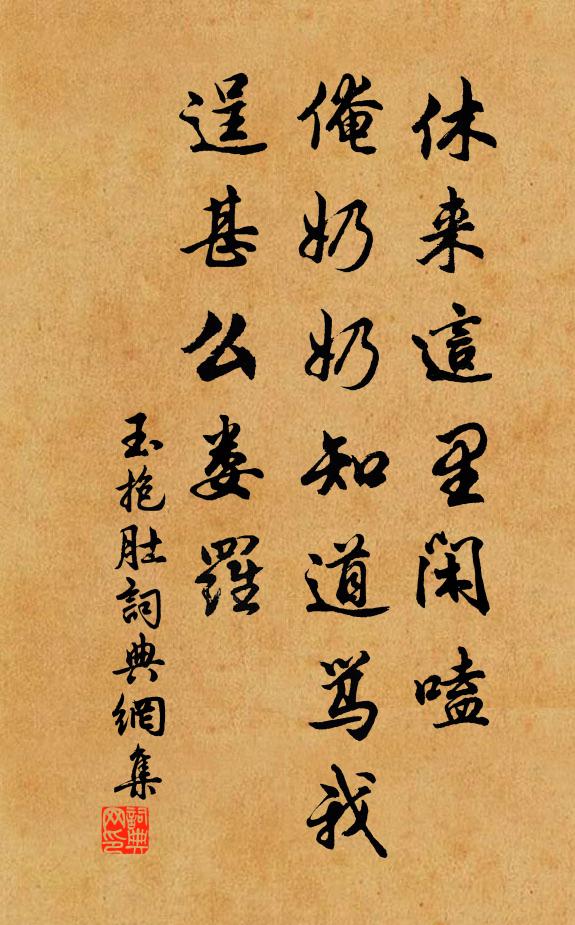 休来這里闲嗑
俺奶奶知道骂我
逞甚么娄羅
玉抱肚詞典網集
詞典网印